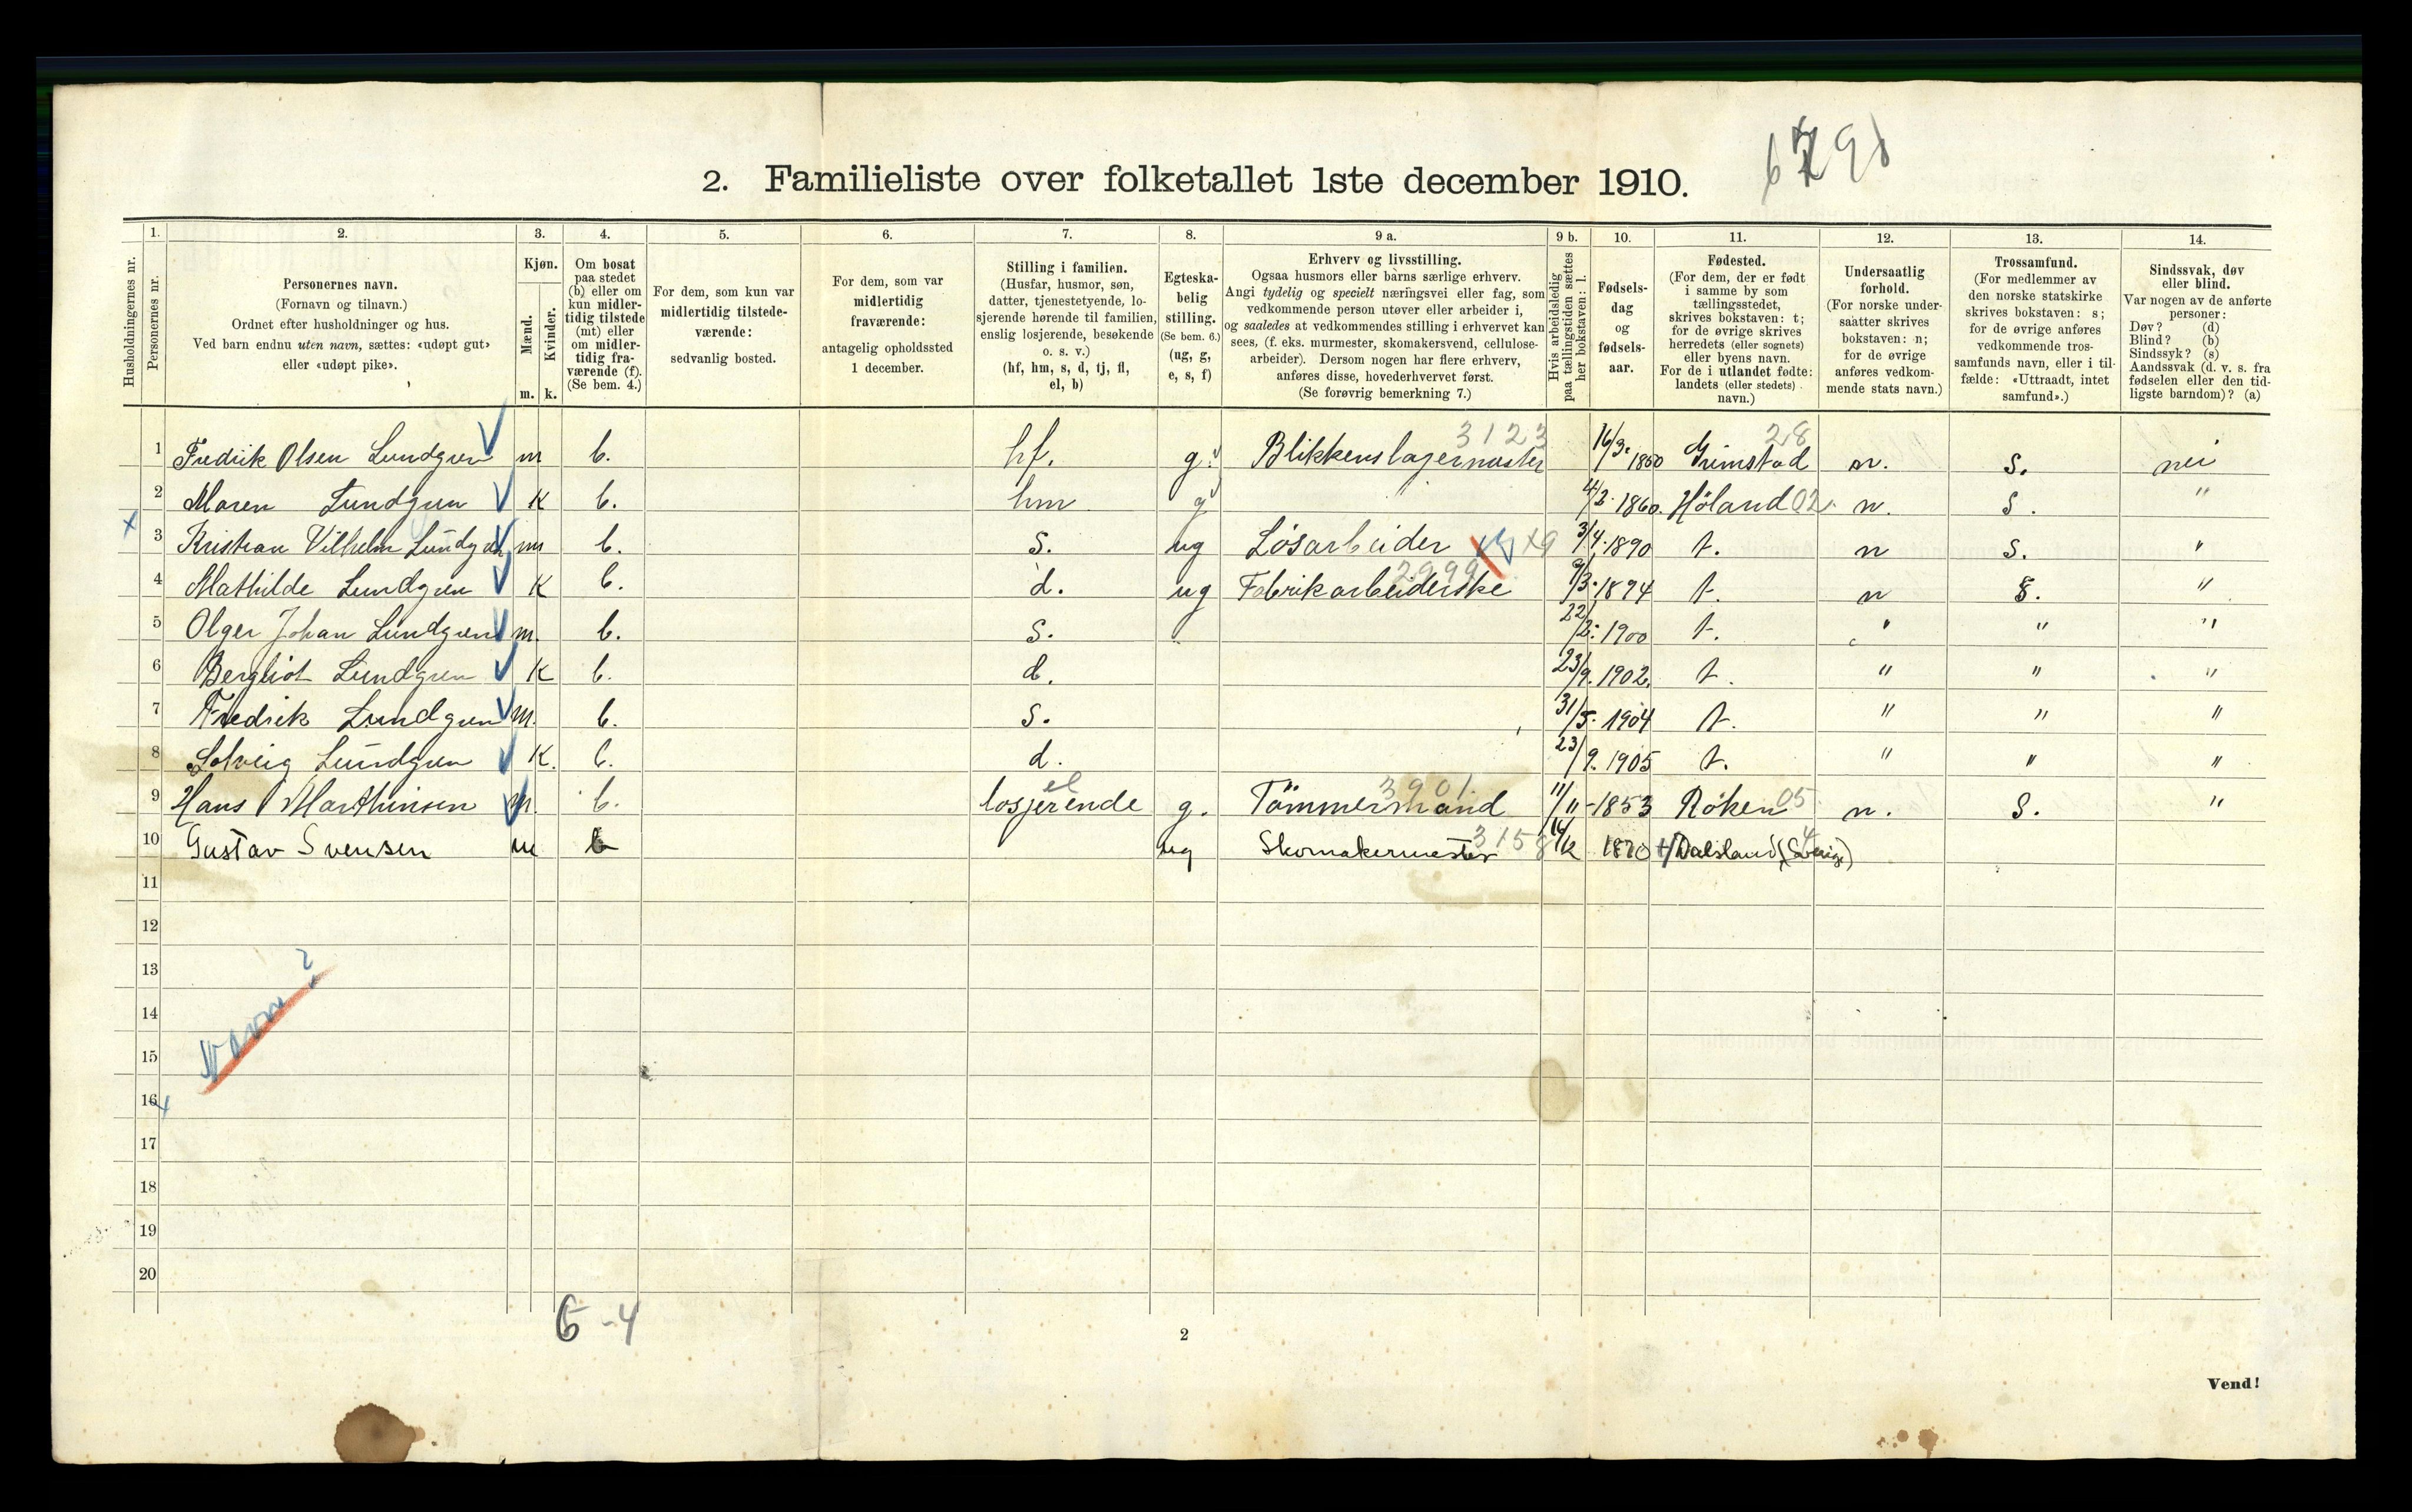 6798
2. Familieliste over folketallet 1ste december 1910.
1. 2. 3. 4. 5. 6. 7. 8. 9 a. 9 b. 10. 11. 12. 13. 14.
Husholdningernes nr.
Personernes nr.
Personernes navn.
(Fornavn og tilnavn.)
Ordnet efter husholdninger og hus.
Ved barn endnu uten navn, sættes: «udøpt gut»
eller «udøpt pike».
Kjøn.
Mænd.
Kvinder.
m. k.
Om bosat
paa stedet
(b) eller om
kun midler-
tidig tilstede
(mt) eller
om midler-
tidig fra-
værende (f).
(Se bem. 4.)
For dem, som kun var
midlertidig tilstede-
værende:
sedvanlig bosted.
For dem, som var
midlertidig
fraværende:
antagelig opholdssted
1 december.
Stilling i familien.
(Husfar, husmor, søn,
datter, tjenestetyende, lo-
sjerende hørende til familien,
enslig losjerende, besøkende
o. s. v.)
(hf, hm, s, d, tj, fl,
el, b)
Egteska-
belig
stilling.
(Se bem. 6.)
(ug, g,
e, s, f)
Erhverv og livsstilling.
Ogsaa husmors eller barns særlige erhverv.
Angi tydelig og specielt næringsvei eller fag, som
vedkommende person utøver eller arbeider i,
og saaledes at vedkommendes stilling i erhvervet kan
sees, (f. eks. murmester, skomakersvend, cellulose-
arbeider). Dersom nogen har flere erhverv,
anføres disse, hovederhvervet først.
(Se forøvrig bemerkning 7.)
Hvis arbeidsledig
paa tællingstiden sættes
her bokstaven: l.
Fødsels-
dag
og
fødsels-
aar.
Fødested.
(For dem, der er født
i samme by som
tællingsstedet,
skrives bokstaven: t;
for de øvrige skrives
herredets (eller sognets)
eller byens navn.
For de i utlandet fødte:
landets (eller stedets)
navn.)
Undersaatlig
forhold.
(For norske under-
saatter skrives
bokstaven: n;
for de øvrige
anføres vedkom-
mende stats navn.)
Trossamfund.
(For medlemmer av
den norske statskirke
skrives bokstaven: s;
for de øvrige anføres
vedkommende tros-
samfunds navn, eller i til-
fælde: «Uttraadt, intet
samfund».)
Sindssvak, døv
eller blind.
Var nogen av de anførte
personer:
Døv? (d)
Blind? (b)
Sindssyk? (s)
Aandssvak (d. v. s. fra
fødselen eller den tid-
ligste barndom)? (a)
1 Fredrik Olsen Lundgren m b. hf. g. Blikkenslagermester 3123 16/3. 1860 Grimstad 28 n. s. nei
2 Maren Lundgren k b. hm g 4/2. 1860. Høland 02 n. s. "
3 Kristian Vilhelm Lundgren m b. s. ug Løsarbeider x9 3/4. 1890 t. n s. "
4 Mathilde Lundgren k b. d. ug Fabrikarbeiderske 2999 9/3. 1894 t. n s. "
5 Olger Johan Lundgren m. b. s. " 22/2. 1900 t. " " "
6 Bergliot Lundgren k b. d. 23/9. 1902. t. " " "
7 Fredrik Lundgren m. b. s. 31/5. 1904 t. " " "
8 Solveig Lundgren k. b. d. 23/9. 1905 t. " " "
9 Hans Marthinsen m. b. losjerende el g. Tömmermand 3901. 11/11-1853 Røken 05 n. S. "
10 Gustav Svensen m b ug Skomakermester 3158 1870 Dalsland (Sverige)
11
12
13
14
15
16
17
18
19
20
Navn?
6-4
2
Vend!